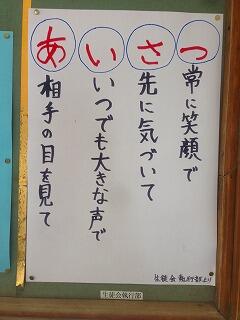 あいさつ
常に笑顔で
先に気づいて
いつでも大きな声で
相手の目を見て
生徒会執行部より
生徒会執行部